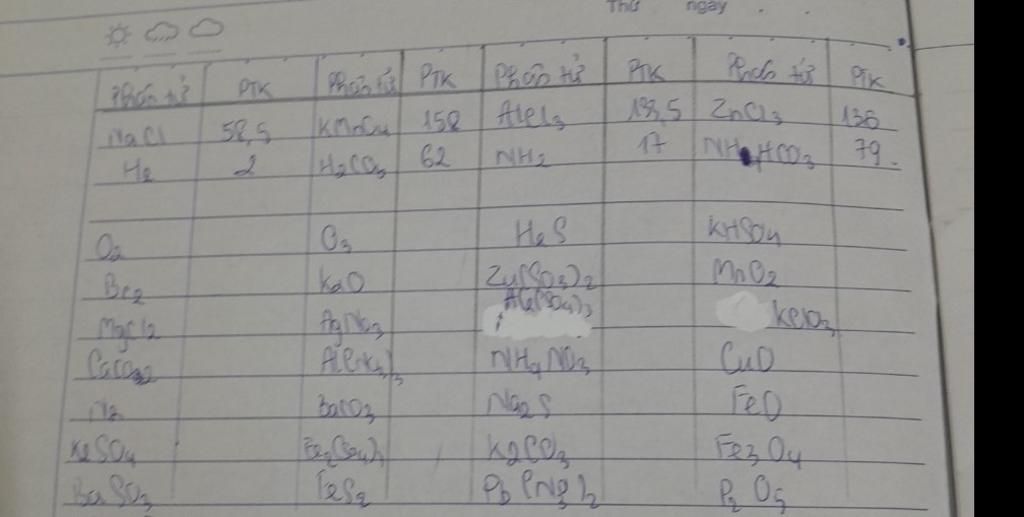 Thứ ngày . .
Phân tử PTK Phân tử PTK Phân tử PTK Phân tử PTK
NaCl 58,5 KMnO4 158 AlCl3 133,5 ZnCl3 136
H2 2 H2CO3 62 NH2 17 NH4HCO3 79.
O2 O3 H2S KHSO4
Br2 K2O MnO2
MgCl2 AgNO3 Al2(SO4)3 KClO3
NH4NO3 CuO
N2 BaCO3 Na2S FeO
K2SO4 Fe2(SO4)3 K2CO3 Fe3O4
BaSO3 FeS2 P2O5